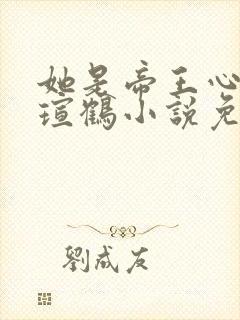 她是帝王心
瑄鶴小說免
劉成友